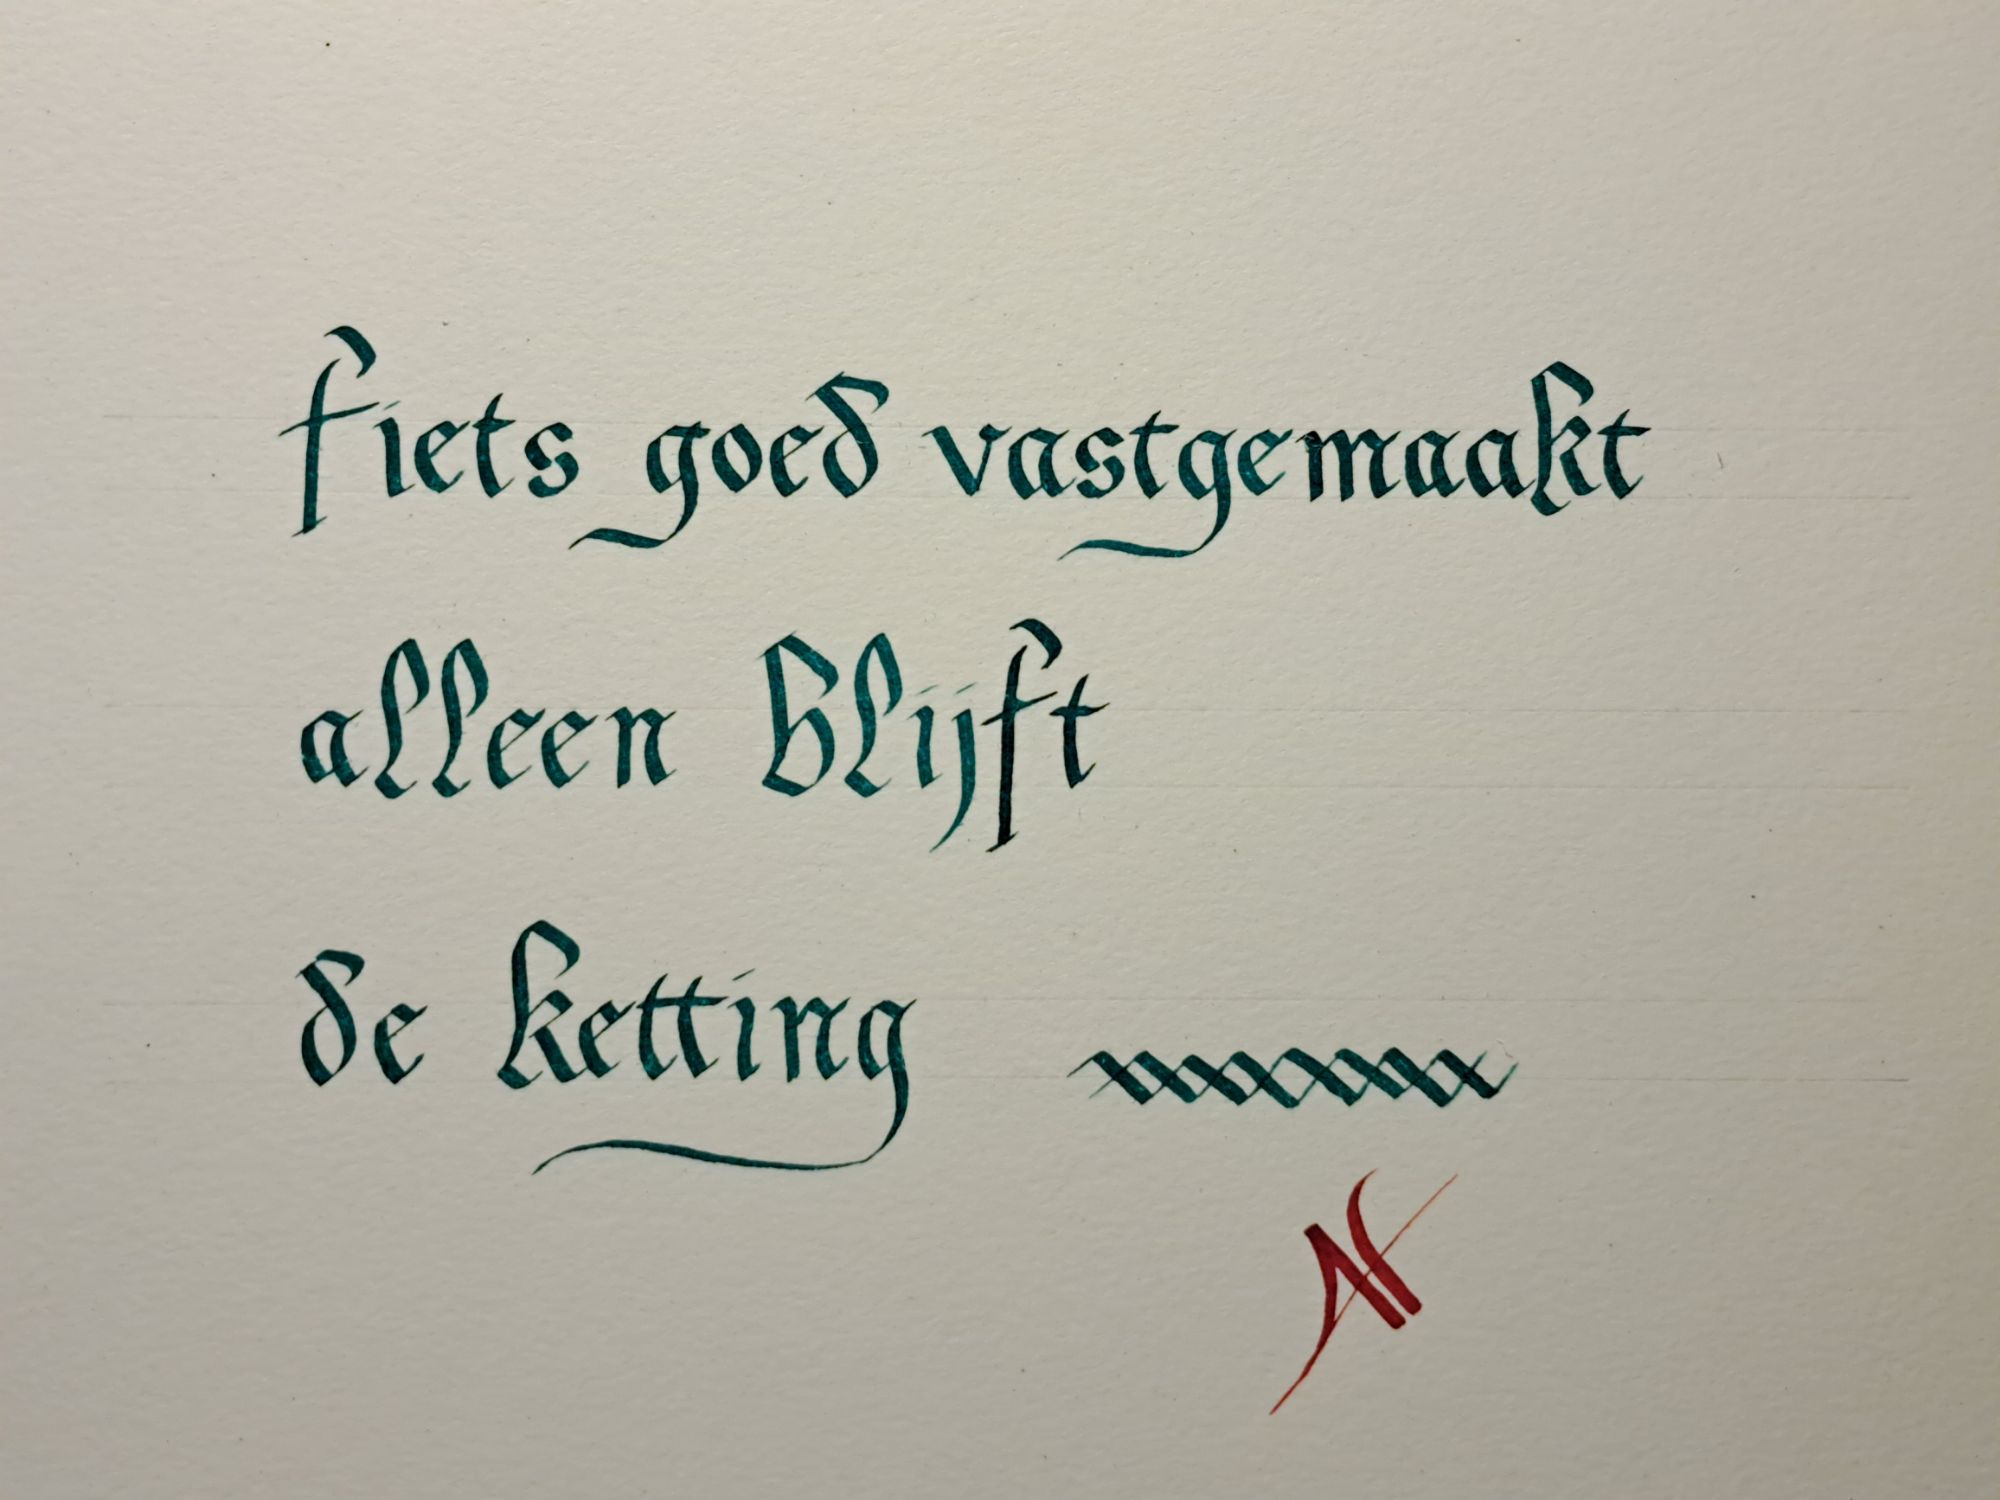 fiets goed vastgemaakt
alleen blijft
de ketting